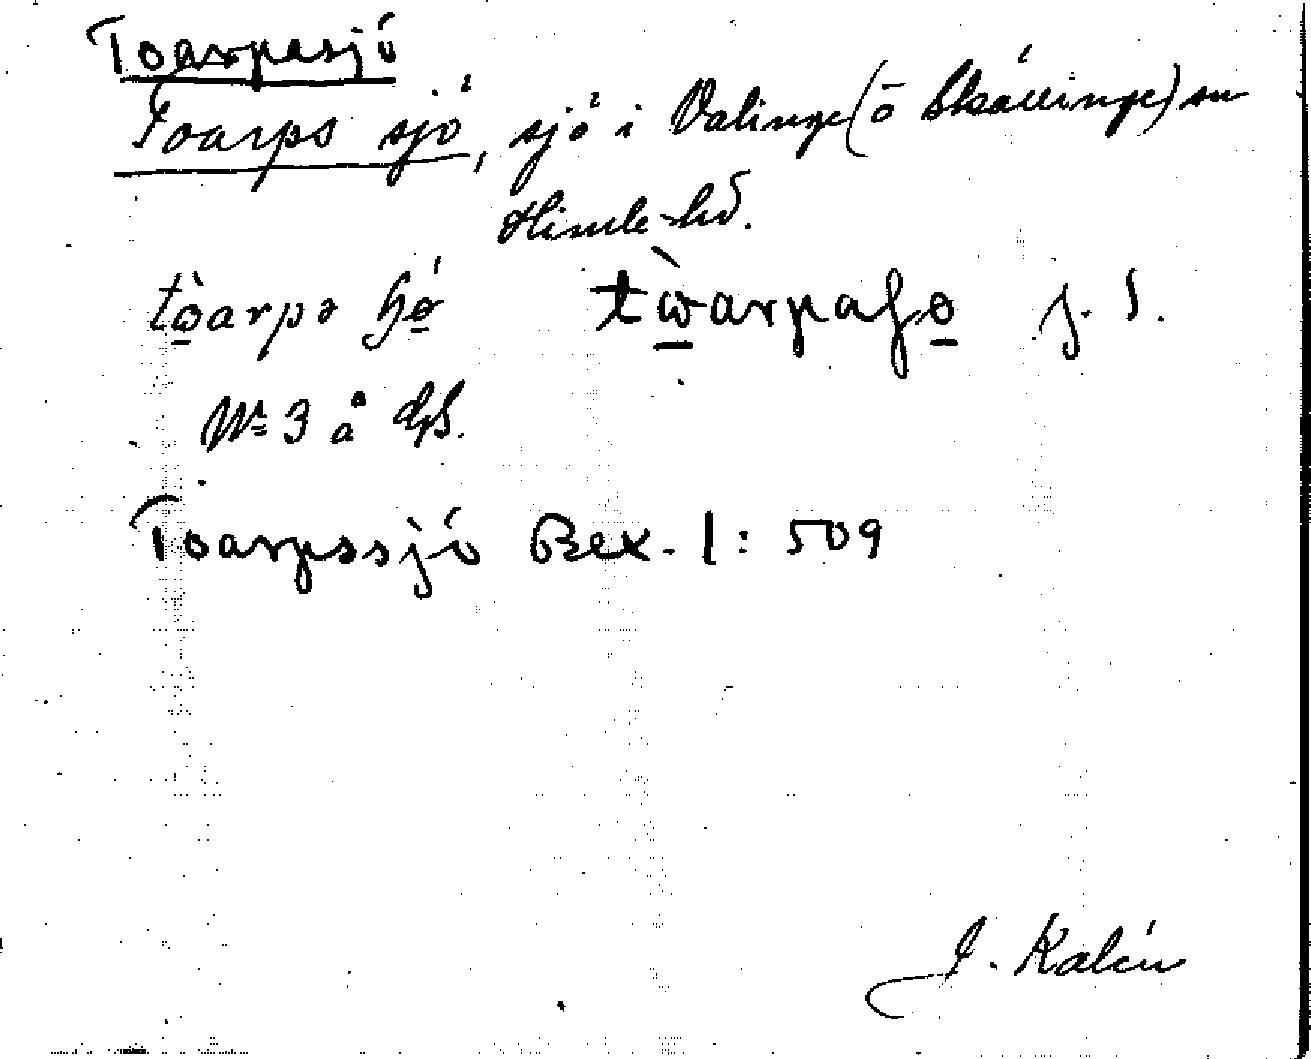 Toarpasjö
Toarps sjö, sjö i Valinge (o Skällinge) sn
Himle hd.
tòarpa ɧø tòarpaɧø J. S.
Nr 3 å GS.
Toarpssjö Bex. 1: 509
J. Kalén